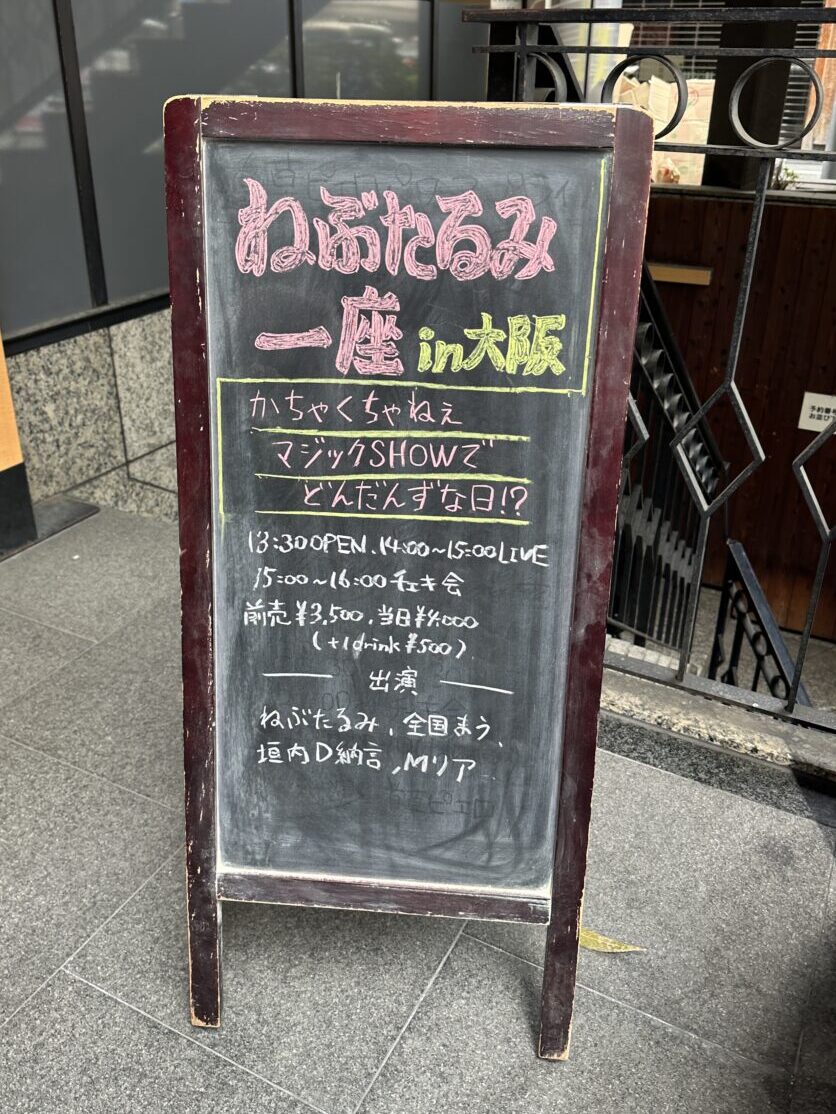 ねぶたるみ
一座 in大阪
かちゃくちゃねぇ
マジックSHOWで
どんだんずな日!?
13:30OPEN、14:00~15:00LIVE
15:00~16:00チェキ会
前売¥3,500、当日¥4,000
(+1drink¥500)
出演
ねぶたるみ、全国まう、
垣内D納言、Mリア
予約番
お並び